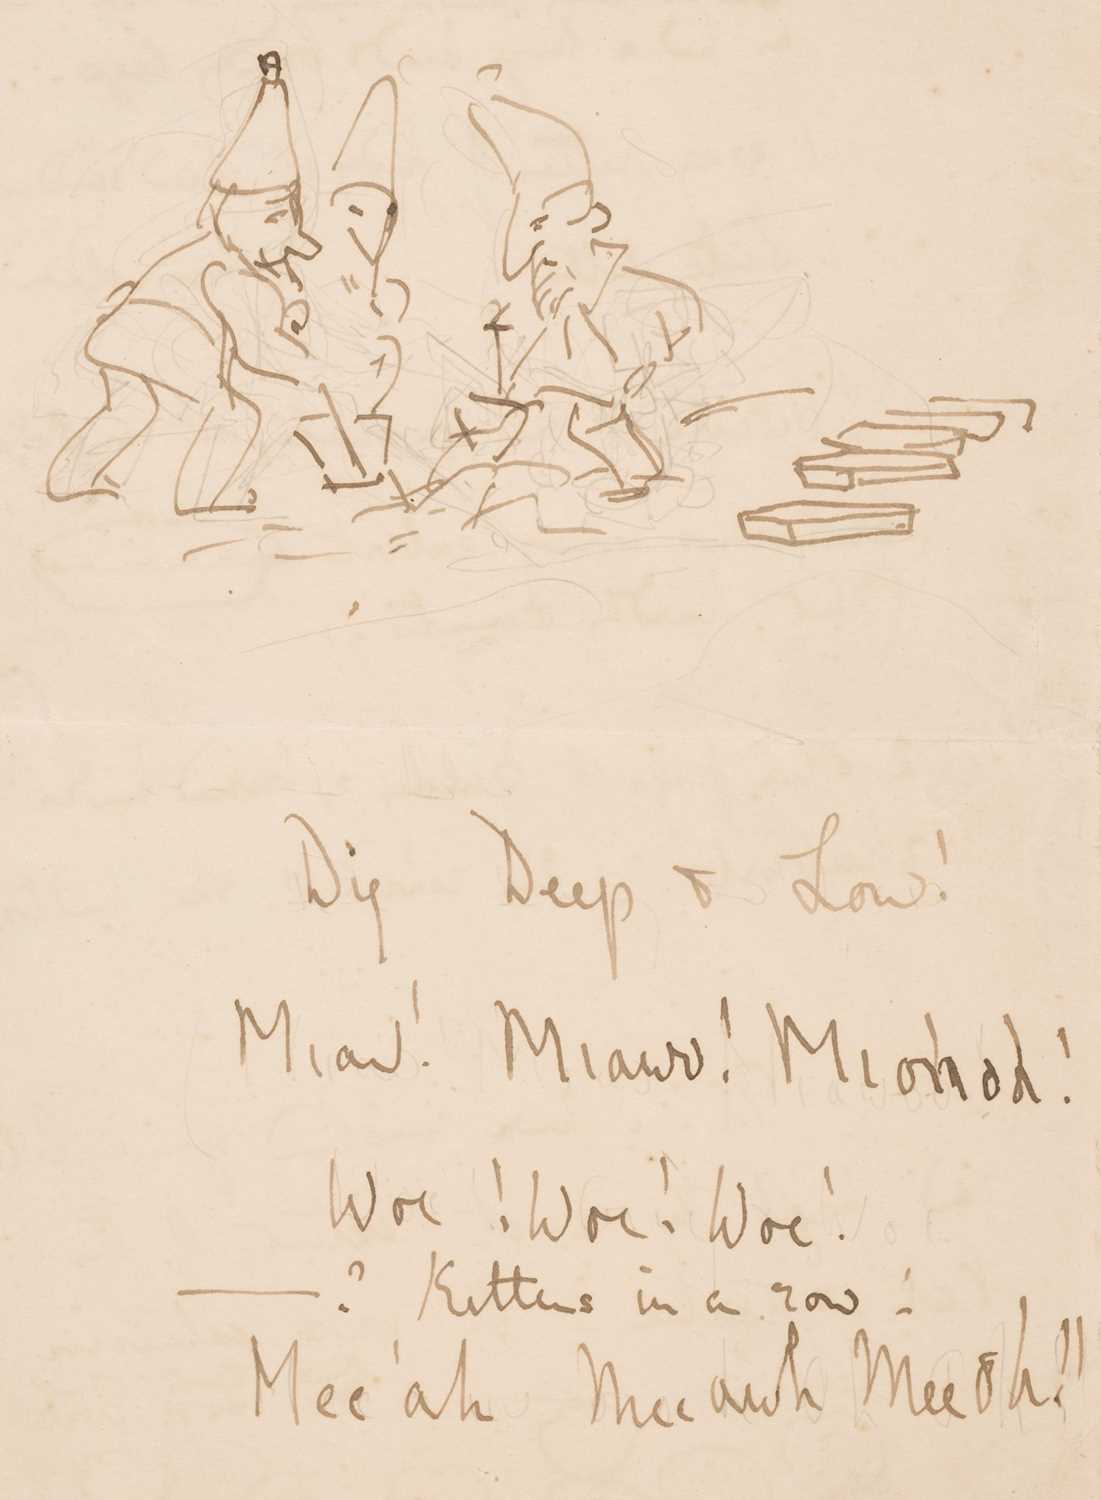 Dig Deep & Low!
Miaw! Miawv! Miohoh!
Woe! Woe! Woe!
——? Kittens in a row!
Mee'ah Meeawh Meeoh!!